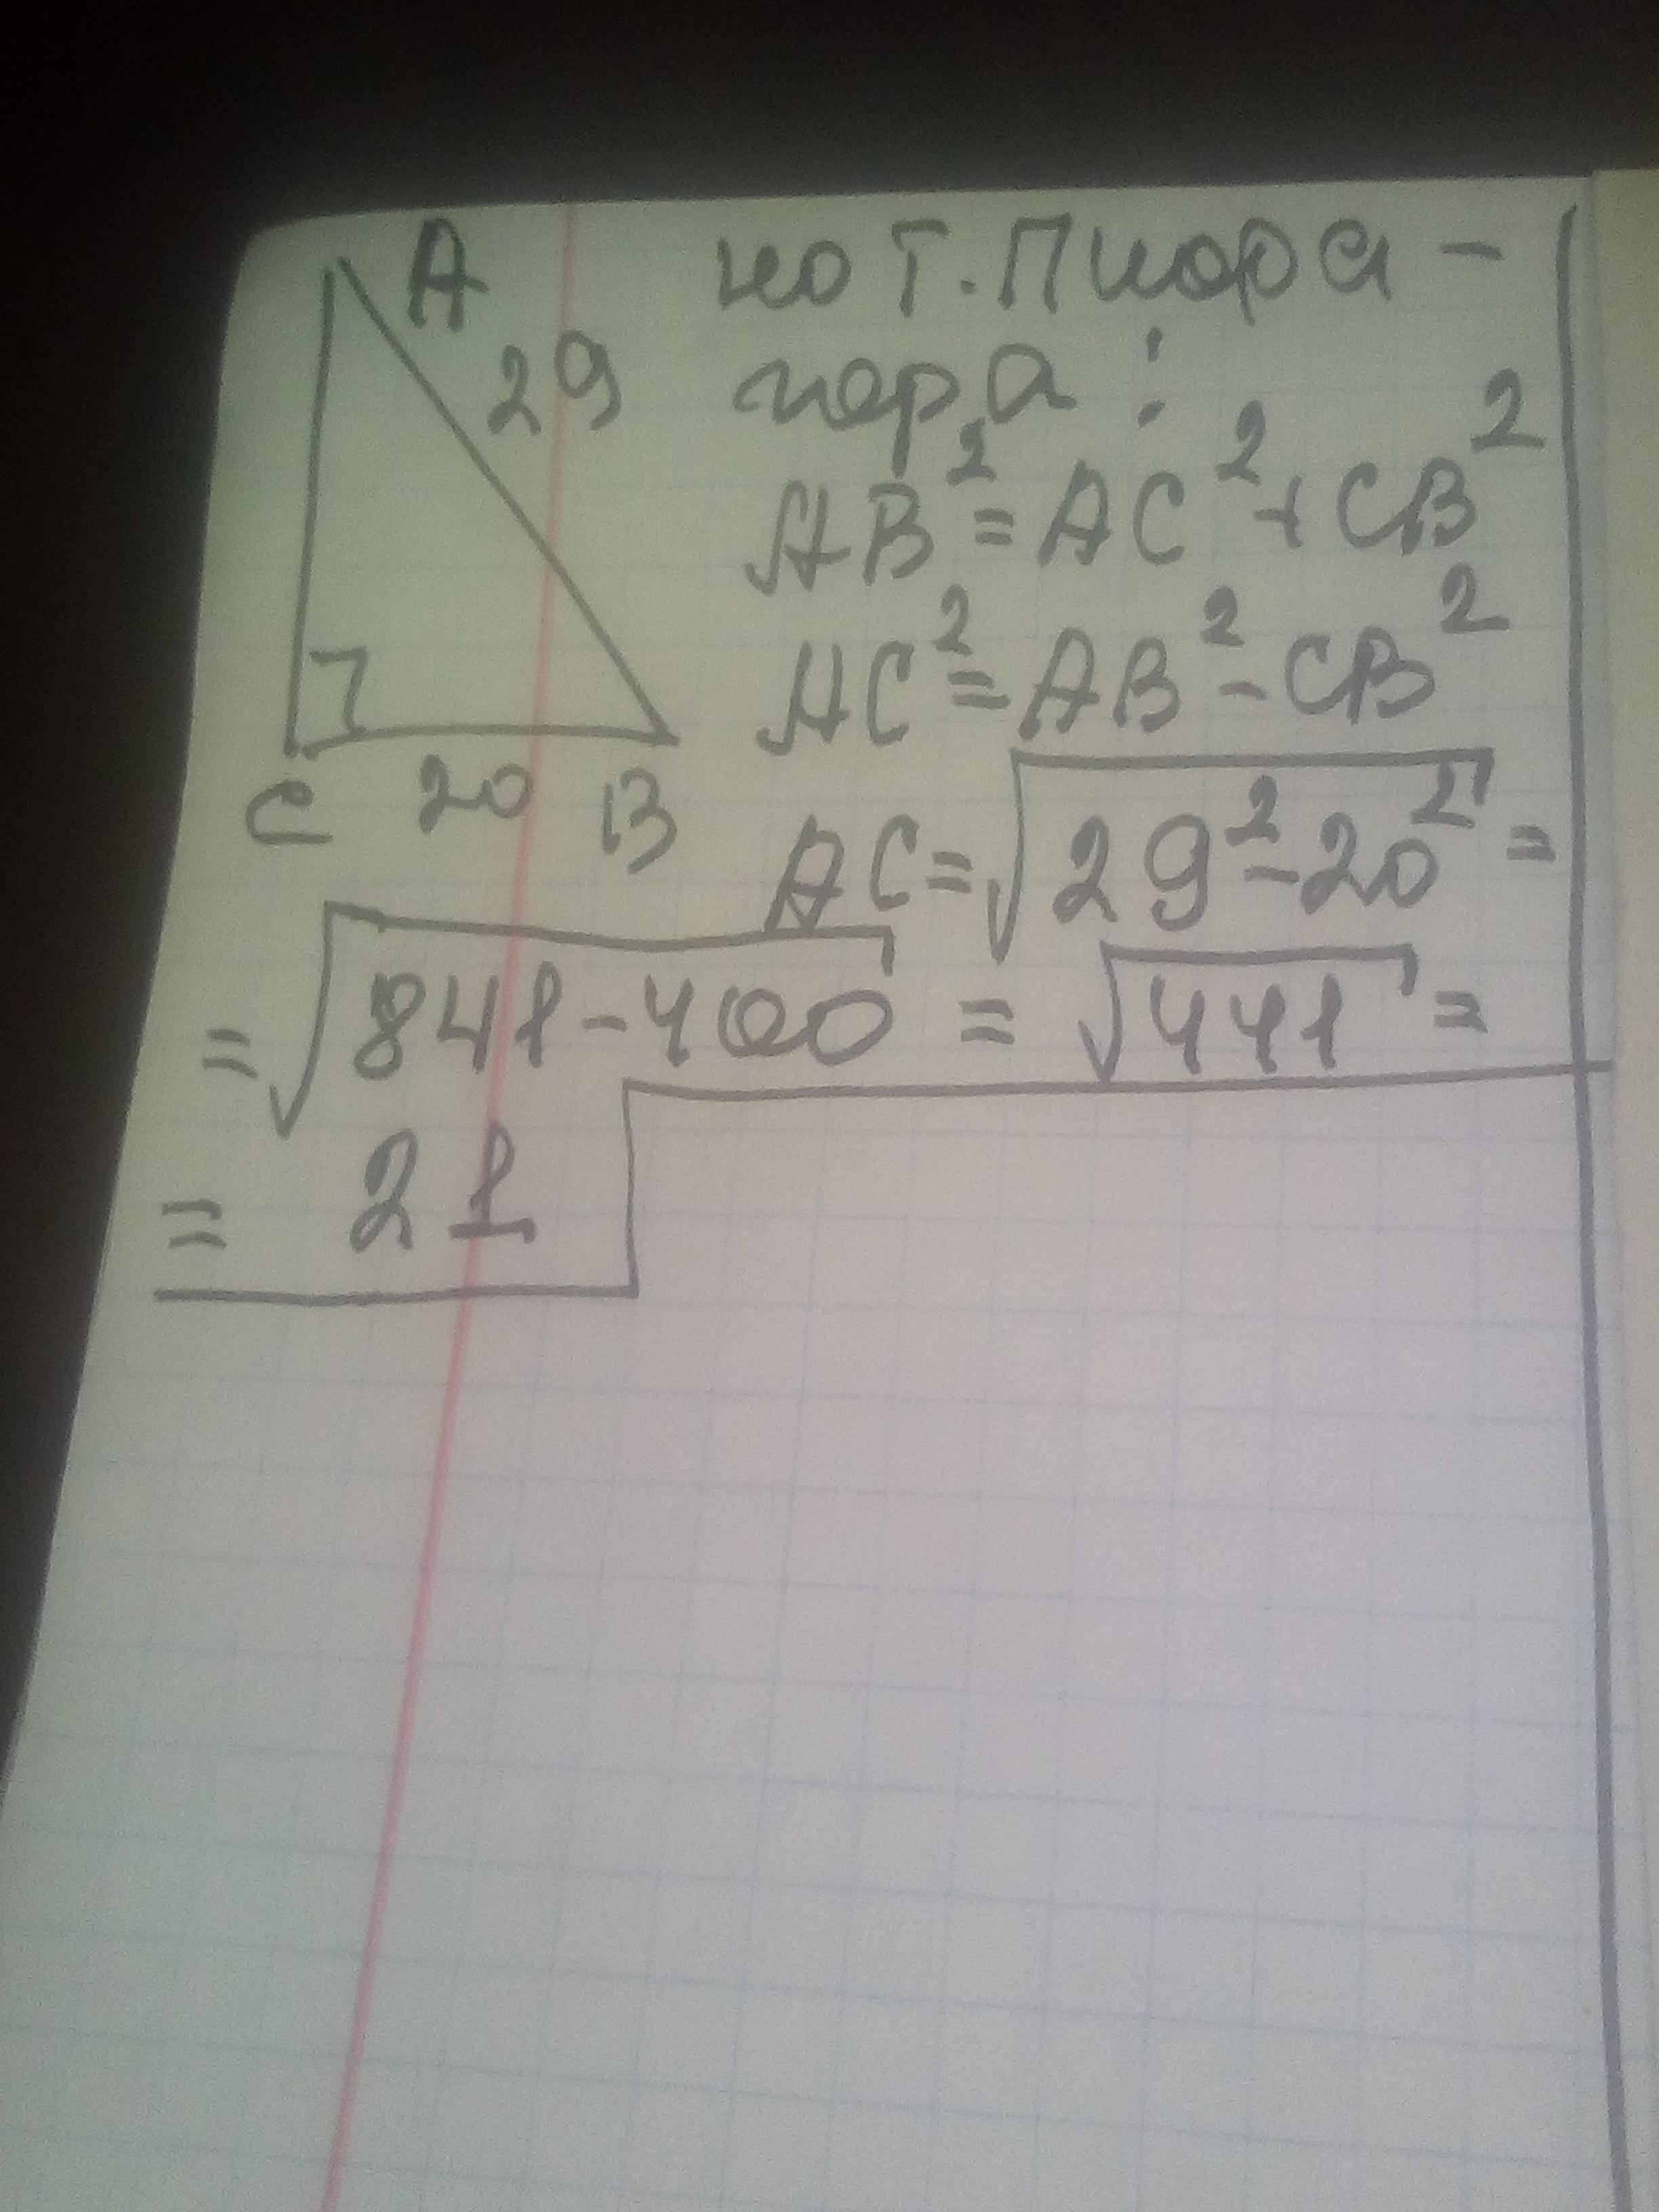 A
29
C 20 B
по т. Пифа-
гора:
AB² = AC² + CB²
AC² = AB² - CB²
AC = √29² - 20² =
= √841 - 400 = √441 =
= 21